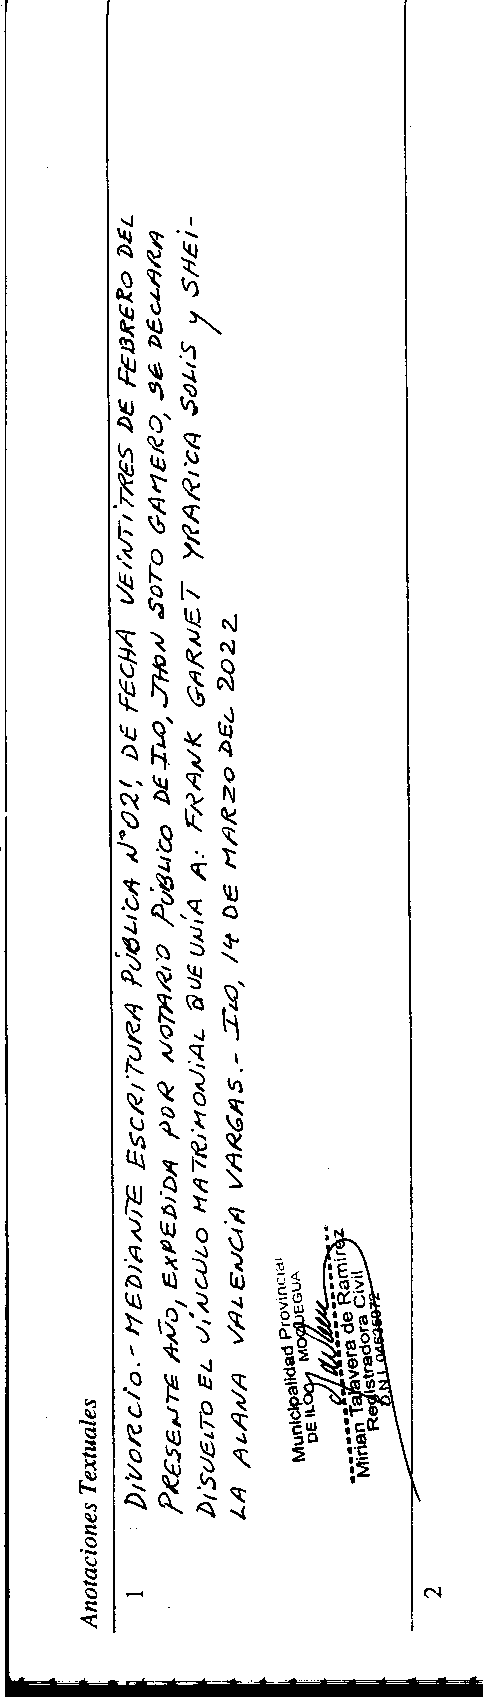 Anotaciones Textuales
1 DIVORCIO.- MEDIANTE ESCRITURA PÚBLICA N°021, DE FECHA VEINTITRES DE FEBRERO DEL
PRESENTE AÑO, EXPEDIDA POR NOTARIO PÚBLICO DE ILO, JHON SOTO GAMERO, SE DECLARA
DISUELTO EL VÍNCULO MATRIMONIAL QUE UNÍA A: FRANK GARNET YRARICA SOLIS y SHEI-
LA ALANA VALENCIA VARGAS.- ILO, 14 DE MARZO DEL 2022
Municipalidad Provincial
DE ILO MOQUEGUA
Mirian Talavera de Ramirez
Registradora Civil
D.N.I.
2